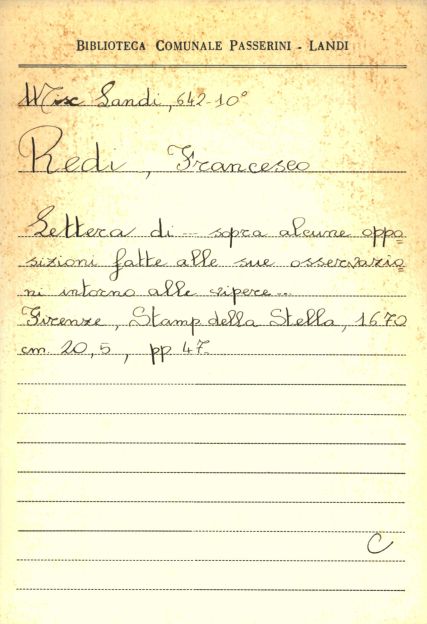 BIBLIOTECA COMUNALE PASSERINI - LANDI
Misc Landi, 642-10°
Redi, Francesco
Lettera di -- sopra alcune oppo=
sizioni fatte alle sue osservazio=
ni intorno alle vipere --
Firenze, Stamp della Stella, 1670
cm. 20,5, pp. 47
C